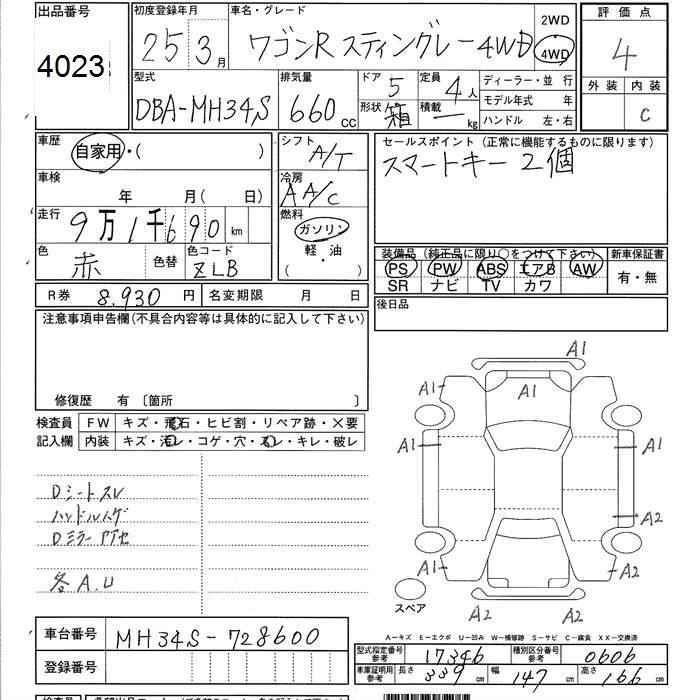 出品番号 4023
初度登録年月 25 3月
車名・グレード ワゴンR スティングレー 4WD
2WD
4WD
評価点 4
外装 内装 C
型式 DBA-MH34S
排気量 660 cc
ドア 5
形状 箱
定員 4人
積載 ー kg
ディーラー・並 行
モデル年式 年
ハンドル 左・右
車歴 自家用・( )
シフト A/T
セールスポイント (正常に機能するものに限ります)
スマートキー 2個
車検 年 月( 日)
冷房 AA/C
走行 9万1千690 km
燃料 ガソリン
軽・油
( )
色 赤 色替 色コード ZLB
装備品 (純正品に限り○をつけて下さい)
PS PW ABS エアB AW
SR ナビ TV カワ
新車保証書
有・無
R券 8,930 円 名変期限 月 日
後日品
注意事項申告欄(不具合内容等は具体的に記入して下さい)
修復歴 有 〔箇所 〕
検査員 FW キズ・飛石・ヒビ割・リペア跡・×要
記入欄 内装 キズ・汚レ・コゲ・穴・スレ・キレ・破レ
Dシートスレ
ハンドルスゲ
Dミラー
各A.U
A1
A1 A1 A1
A1 A1
A2
A1 A2
A2 A2
スペア
A−キズ E−エクボ U−凹み W−補修跡 S−サビ C−腐食 XX−交換済
車台番号 MH34S-728600
登録番号
型式指定番号 参考 17346
種別区分番号 参考 0606
車庫証明用 参考 長さ 339 cm 幅 147 cm 高さ 166 cm